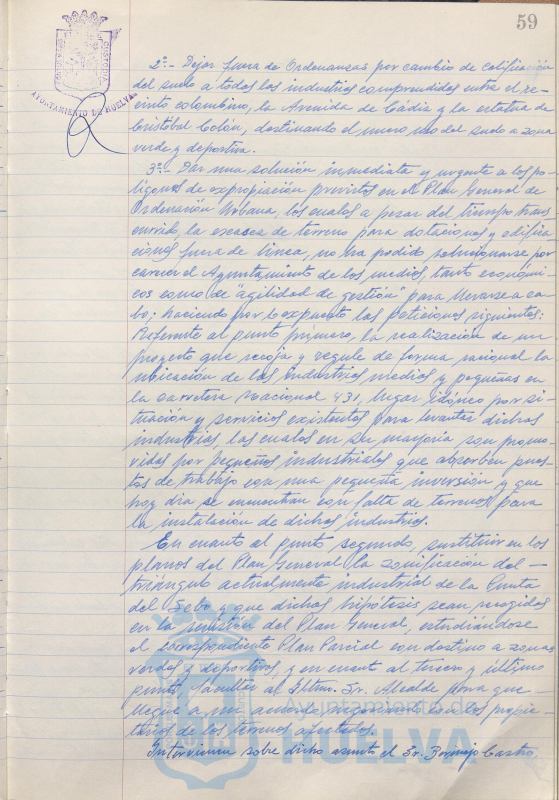 59
AYUNTAMIENTO DE HUELVA
2º.- Dejar fuera de Ordenanzas por cambio de calificación
del suelo a todas las industrias comprendidas entre el re-
cinto colombino, la Avenida de Cádiz y la estatua de
Cristóbal Colón, destinando el nuevo uso del suelo a zona
verde y deportiva.
3º.- Dar una solución inmediata y urgente a los po-
lígonos de expropiación previstos en el Plan General de
Ordenación Urbana, los cuales a pesar del tiempo trans
currido, la escasez de terreno para dotaciones y edifica
ciones fuera de línea, no ha podido solucionarse por
carecer el Ayuntamiento de los medios, tanto económi-
cos como de "agilidad de gestión" para llevarse a ca-
bo; haciendo por lo expuesto las peticiones siguientes:
Referente al punto primero, la realización de un
proyecto que recoja y regule de forma racional la
ubicación de las industrias medias y pequeñas en
la carretera nacional 431, lugar idóneo por si-
tuación y servicios existentes para levantar dichas
industrias las cuales en su mayoría son promo-
vidas por pequeños industriales que absorben pues
tos de trabajo con una pequeña inversión y que
hoy día se encuentran con falta de terrenos para
la instalación de dichas industrias.
En cuanto al punto segundo, sustituir en los
planos del Plan General la zonificación del -
triángulo actualmente industrial de la Punta
del Sebo y que dichas hipótesis sean recogidas
en la revisión del Plan General, estudiándose
el correspondiente Plan Parcial con destino a zonas
verdes y deportivas, y en cuanto al tercero y último
punto, facultar al Iltmo. Sr. Alcalde para que -
llegue a un acuerdo negociando con los propie-
tarios de los terrenos afectados.
Intervienen sobre dicho asunto el Sr. Bermejo Castro,
Ayuntamiento de
HUELVA